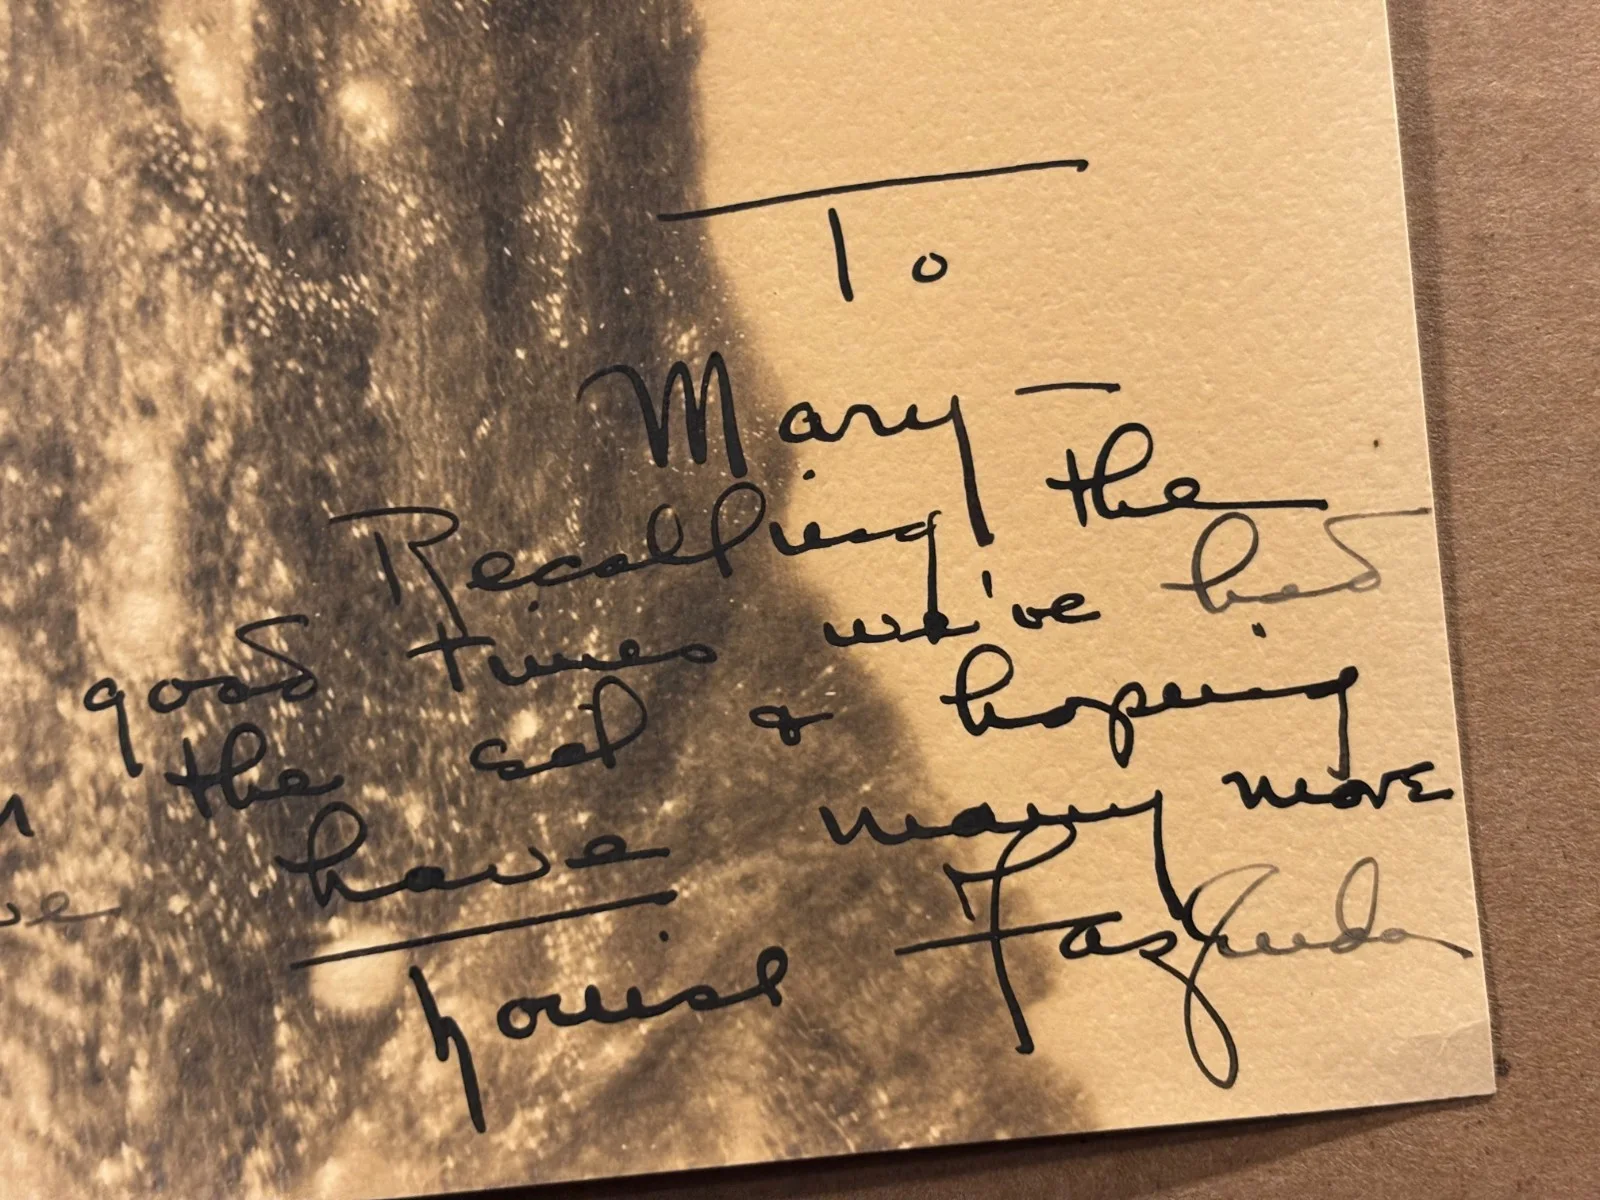 To
Mary —
Recalling the
good times we've had
the set & hoping
have many more
Louise Fazenda